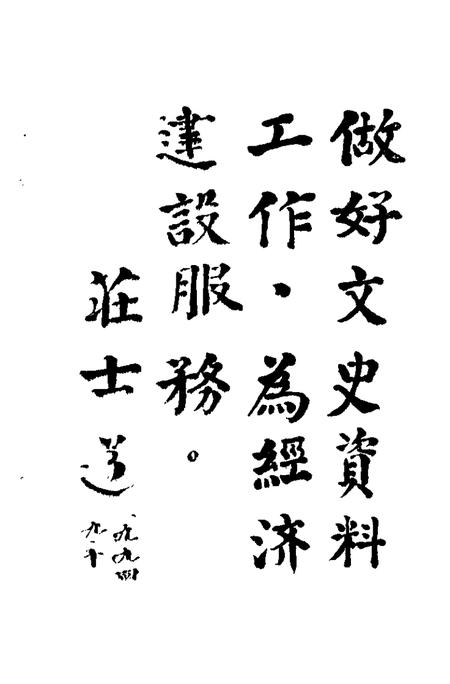 做好文史資料
工作·為經济
建設服務。
莊士
一九九四
九·十